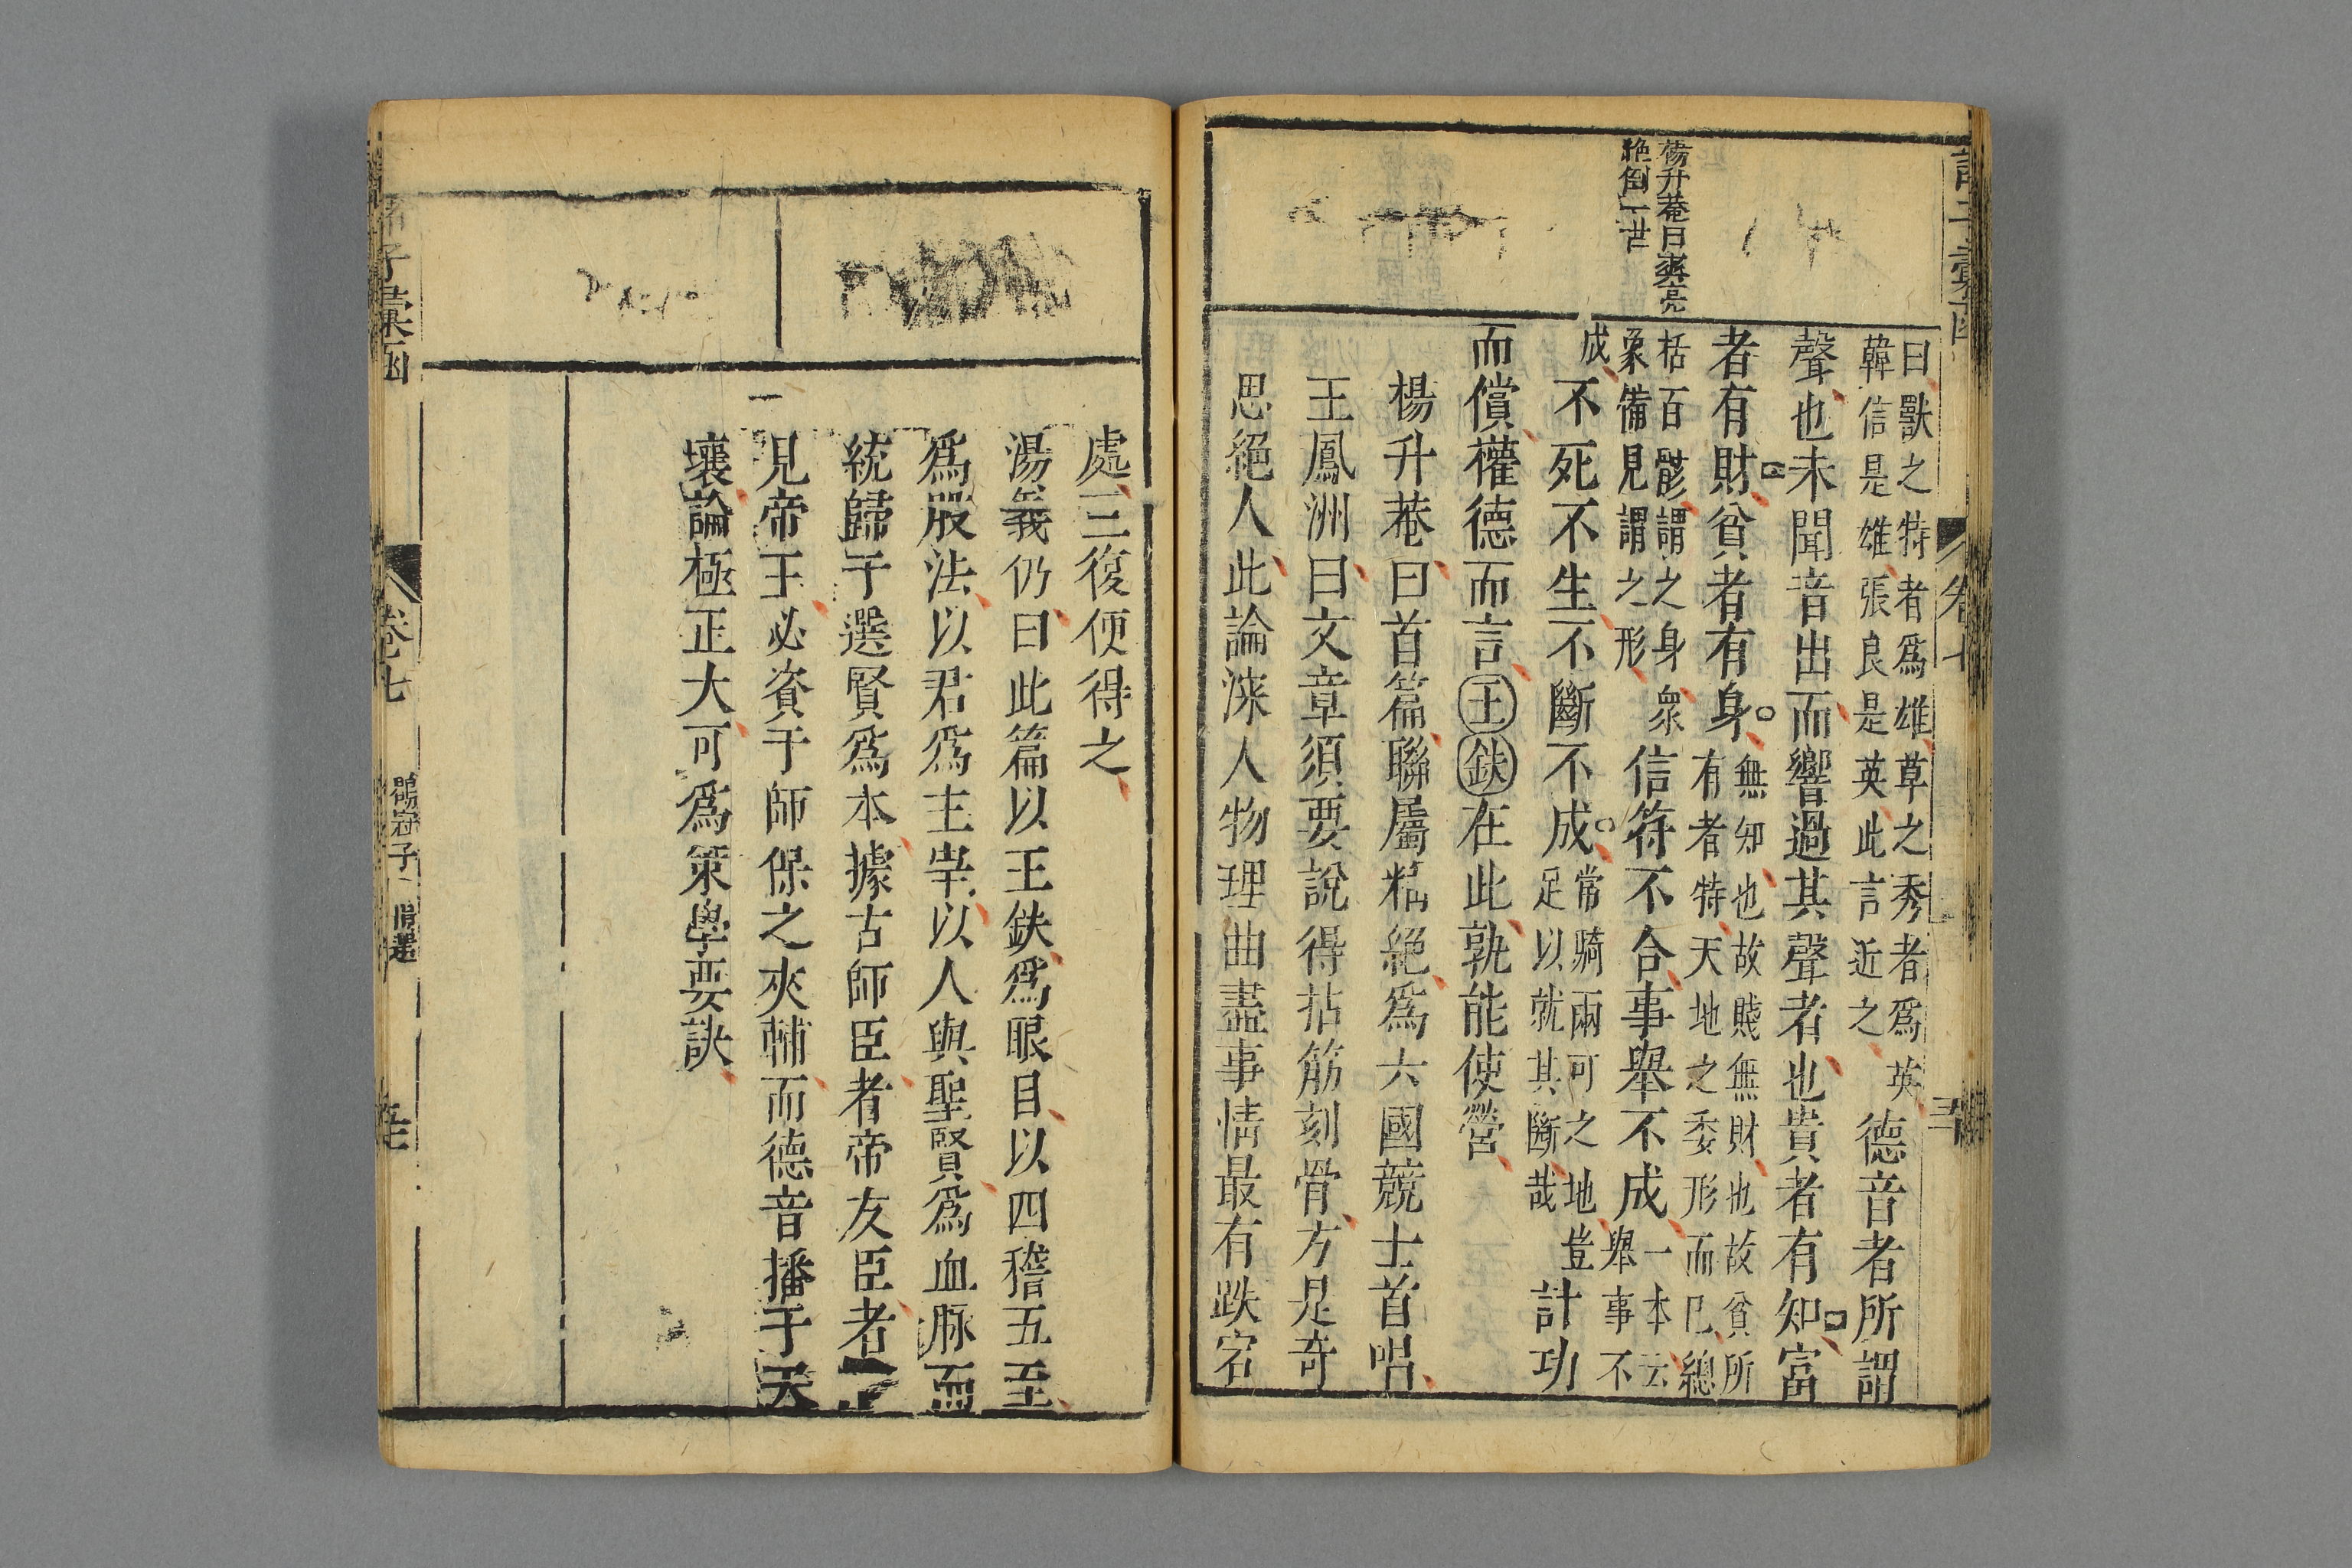 楊升菴曰
絶倒一世
曰獸之特者爲雄草之秀者爲英
韓信是雄張良是英此言近之
德音者所謂
聲也未聞音出而響過其聲者也貴者有知富
者有財貧者有身
無知也故賤無財也故貧所
有者特天地之委形而巳總
括百骸謂之身衆
象備見謂之形
信符不合事舉不成
一本云
舉事不
成
不死不生不斷不成
常騎兩可之地豈
足以就其斷哉
計功
而償權德而言王鈇在此孰能使營
楊升菴曰首篇聯屬精絕爲六國競士首唱
王鳳洲曰文章須要說得拈筋刻骨方是奇
思絕人此論深人物理曲盡事情最有跌宕
處三復便得之
湯義仍曰此篇以王鈇爲眼目以四稽五至
爲殿法以君爲主宰以人與聖賢爲血脉而
統歸于選賢爲本據古師臣者帝友臣者
見帝王必資于師保之夾輔而德音播于天
壤論極正大可爲策學要訣
諸子彙函
卷七
鶡冠子